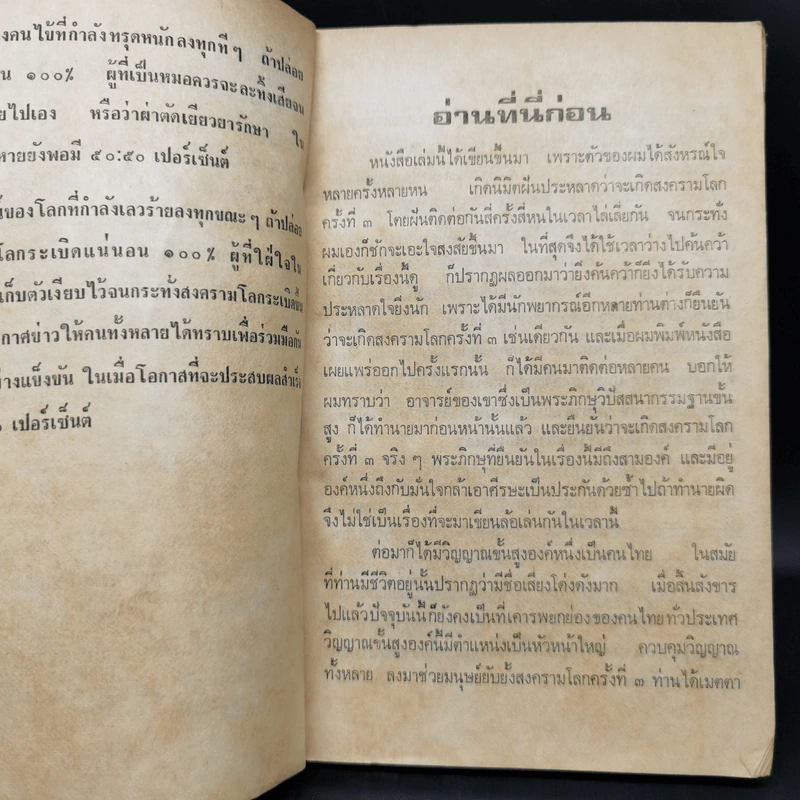 งคนไข้ที่กำลังทรุดหนักลงทุกทีๆ ถ้าปล่อย
น ๑๐๐% ผู้ที่เป็นหมอควรจะละทิ้งเสียจน
ยไปเอง หรือว่าผ่าตัดเยียวยารักษา ใน
หายยังพอมี ๕๐:๕๐ เปอร์เซ็นต์
นของโลกที่กำลังเลวร้ายลงทุกขณะๆ ถ้าปล่อย
โลกระเบิดแน่นอน ๑๐๐% ผู้ที่ใฝ่ใจใน
เก็บตัวเงียบไว้จนกระทั่งสงครามโลกระเบิด
กาศข่าวให้คนทั้งหลายได้ทราบเพื่อร่วมมือกัน
างแข็งขัน ในเมื่อโอกาสที่จะประสบผลสำเร็จ
เปอร์เซ็นต์
อ่านที่นี่ก่อน
หนังสือเล่มนี้ได้เขียนขึ้นมา เพราะตัวของผมได้สังหรณ์ใจ
หลายครั้งหลายหน เกิดนิมิตฝันประหลาดว่าจะเกิดสงครามโลก
ครั้งที่ ๓ โดยฝันติดต่อกันสี่ครั้งสี่หนในเวลาไล่เลี่ยกัน จนกระทั่ง
ผมเองก็ชักจะเอะใจสงสัยขึ้นมา ในที่สุดจึงได้ใช้เวลาว่างไปค้นคว้า
เกี่ยวกับเรื่องนี้ดู ก็ปรากฏผลออกมาว่ายิ่งค้นคว้าก็ยิ่งได้รับความ
ประหลาดใจยิ่งนัก เพราะได้มีนักพยากรณ์อีกหลายท่านต่างก็ยืนยัน
ว่าจะเกิดสงครามโลกครั้งที่ ๓ เช่นเดียวกัน และเมื่อผมพิมพ์หนังสือ
เผยแพร่ออกไปครั้งแรกนั้น ก็ได้มีคนมาติดต่อหลายคน บอกให้
ผมทราบว่า อาจารย์ของเขาซึ่งเป็นพระภิกษุวิปัสสนากรรมฐานขั้น
สูง ก็ได้ทำนายมาก่อนหน้านั้นแล้ว และยืนยันว่าจะเกิดสงครามโลก
ครั้งที่ ๓ จริง ๆ พระภิกษุที่ยืนยันในเรื่องนี้มีถึงสามองค์ และมีอยู่
องค์หนึ่งถึงกับมั่นใจกล้าเอาศีรษะเป็นประกันด้วยซ้ำไปถ้าทำนายผิด
จึงไม่ใช่เป็นเรื่องที่จะมาเขียนล้อเล่นกันในเวลานี้
ต่อมาก็ได้มีวิญญาณขั้นสูงองค์หนึ่งเป็นคนไทย ในสมัย
ที่ท่านมีชีวิตอยู่นั้นปรากฏว่ามีชื่อเสียงโด่งดังมาก เมื่อสิ้นสังขาร
ไปแล้วปัจจุบันนี้ก็ยังคงเป็นที่เคารพยกย่องของคนไทยทั่วประเทศ
วิญญาณขั้นสูงองค์นี้มีตำแหน่งเป็นหัวหน้าใหญ่ ควบคุมวิญญาณ
ทั้งหลาย ลงมาช่วยมนุษย์ยับยั้งสงครามโลกครั้งที่ ๓ ท่านได้เมตตา